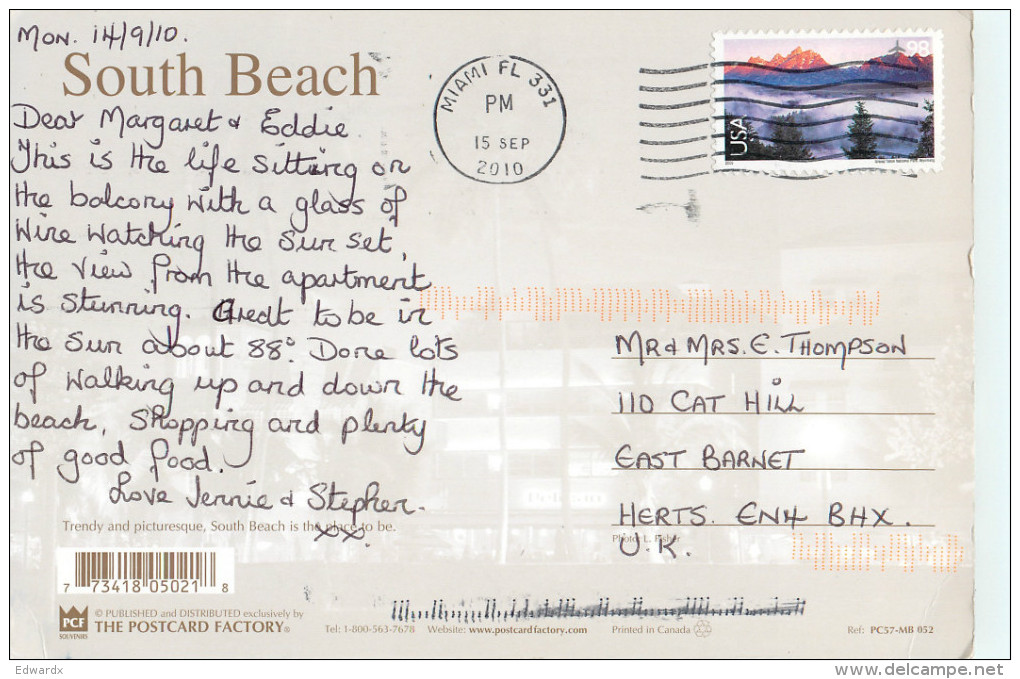 Mon. 14/9/10.
South Beach
Dear Margaret & Eddie
This is the life sitting on
the balcony with a glass of
wine watching the sun set,
the view from the apartment
is stunning. Great to be in
the sun about 88°. Done lots
of walking up and down the
beach, shopping and plenty
of good food.
Love Jennie & Stephen.
xx.
Trendy and picturesque, South Beach is the place to be.
7 73418 05021 8
PCF
SOUVENIRS
© PUBLISHED and DISTRIBUTED exclusively by
THE POSTCARD FACTORY®
Tel: 1-800-563-7678 Website: www.postcardfactory.com Printed in Canada Ref: PC57-MB 052
MIAMI FL 331
PM
15 SEP
2010
98
USA
MR & MRS. E. THOMPSON
110 CAT HILL
EAST BARNET
HERTS. EN4 8HX.
Photo: L. Fisher
U.K.
Pelican
Edwardx
www.delcampe.net